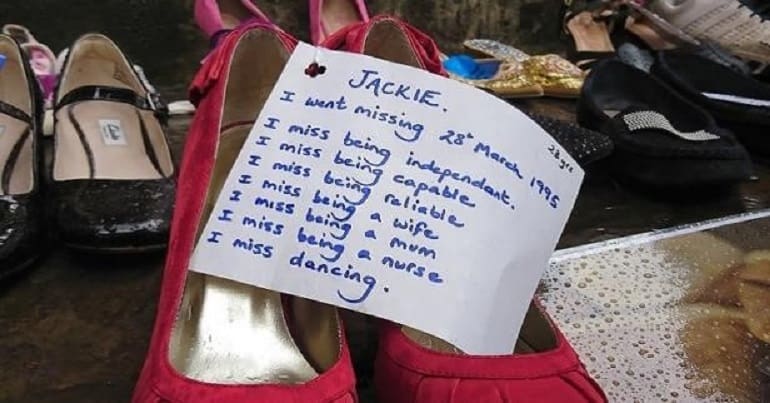 JACKIE.
I went missing 28th March 1995
28yrs
I miss being independant.
I miss being capable
I miss being reliable
I miss being a wife
I miss being a mum
I miss being a nurse
I miss dancing.